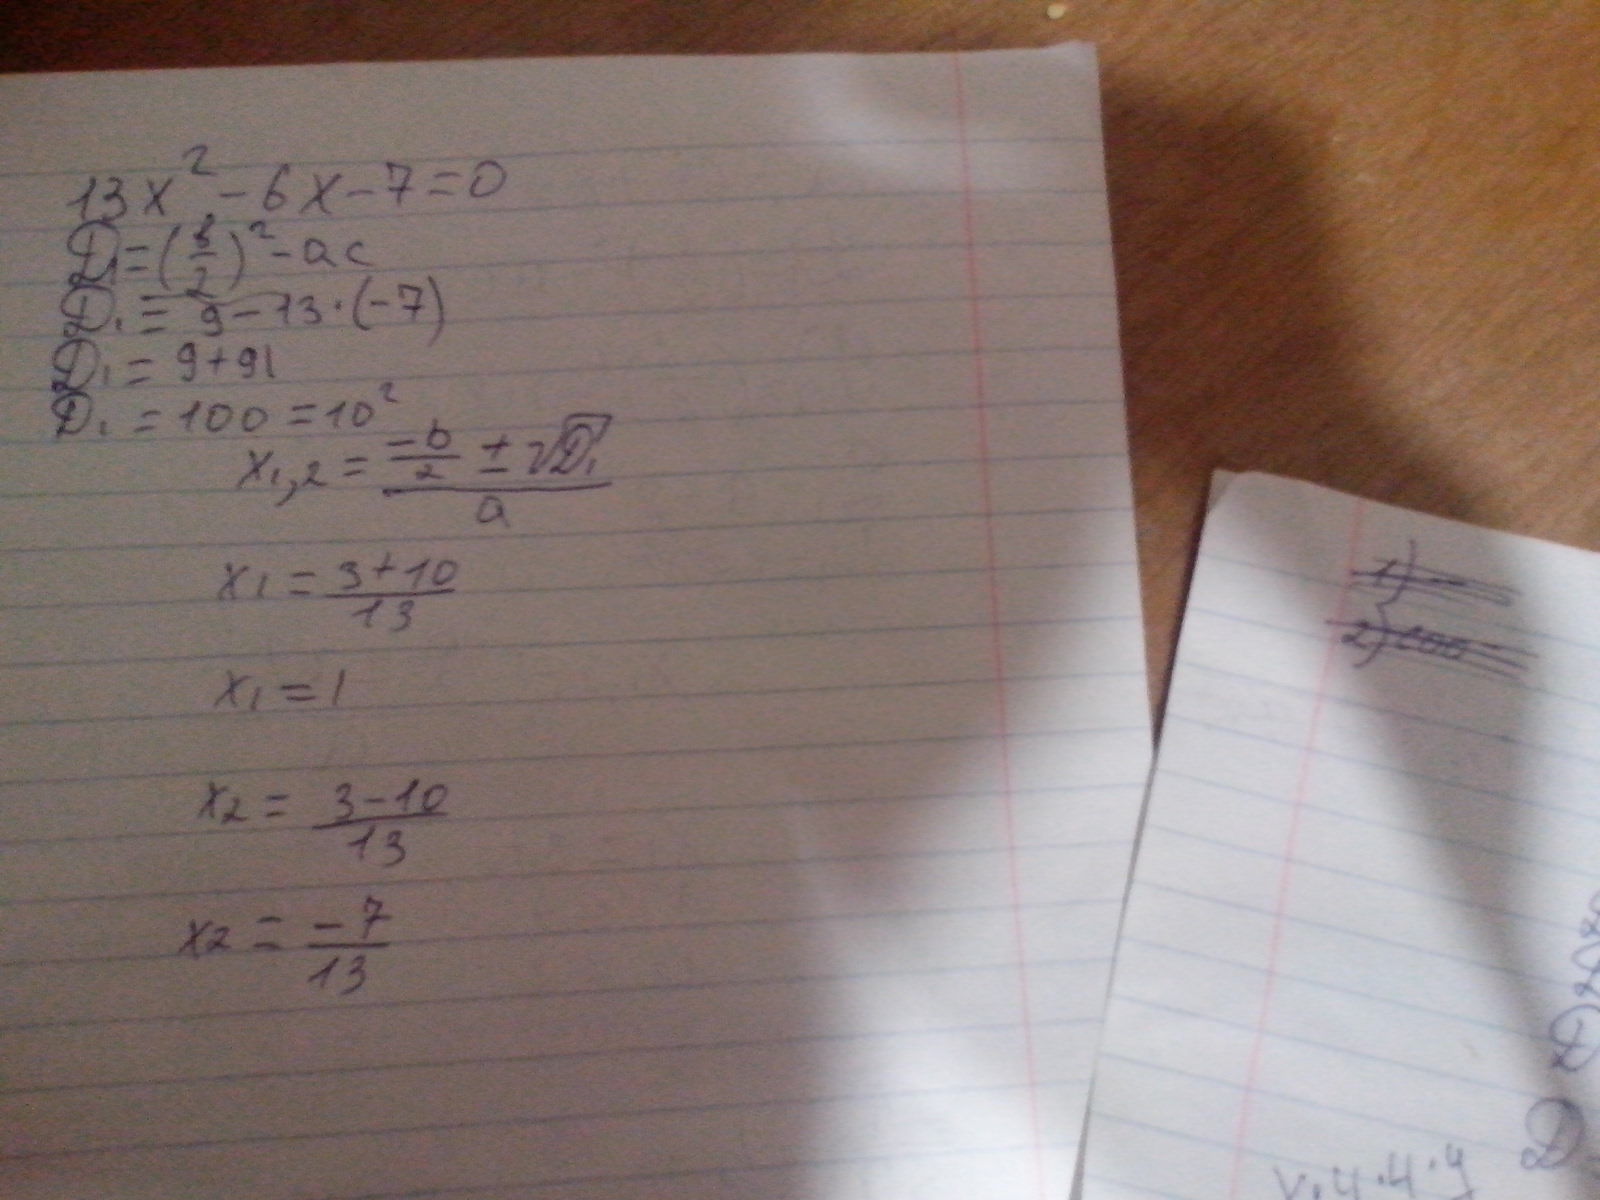 13x² - 6x - 7 = 0
D₁ = (b/2)² - ac
D₁ = 9 - 13 · (-7)
D₁ = 9 + 91
D₁ = 100 = 10²
x₁,₂ = (-b/2 ± √D₁)/a
x₁ = (3+10)/13
x₁ = 1
x₂ = (3-10)/13
x₂ = -7/13
1)
2) 100
D